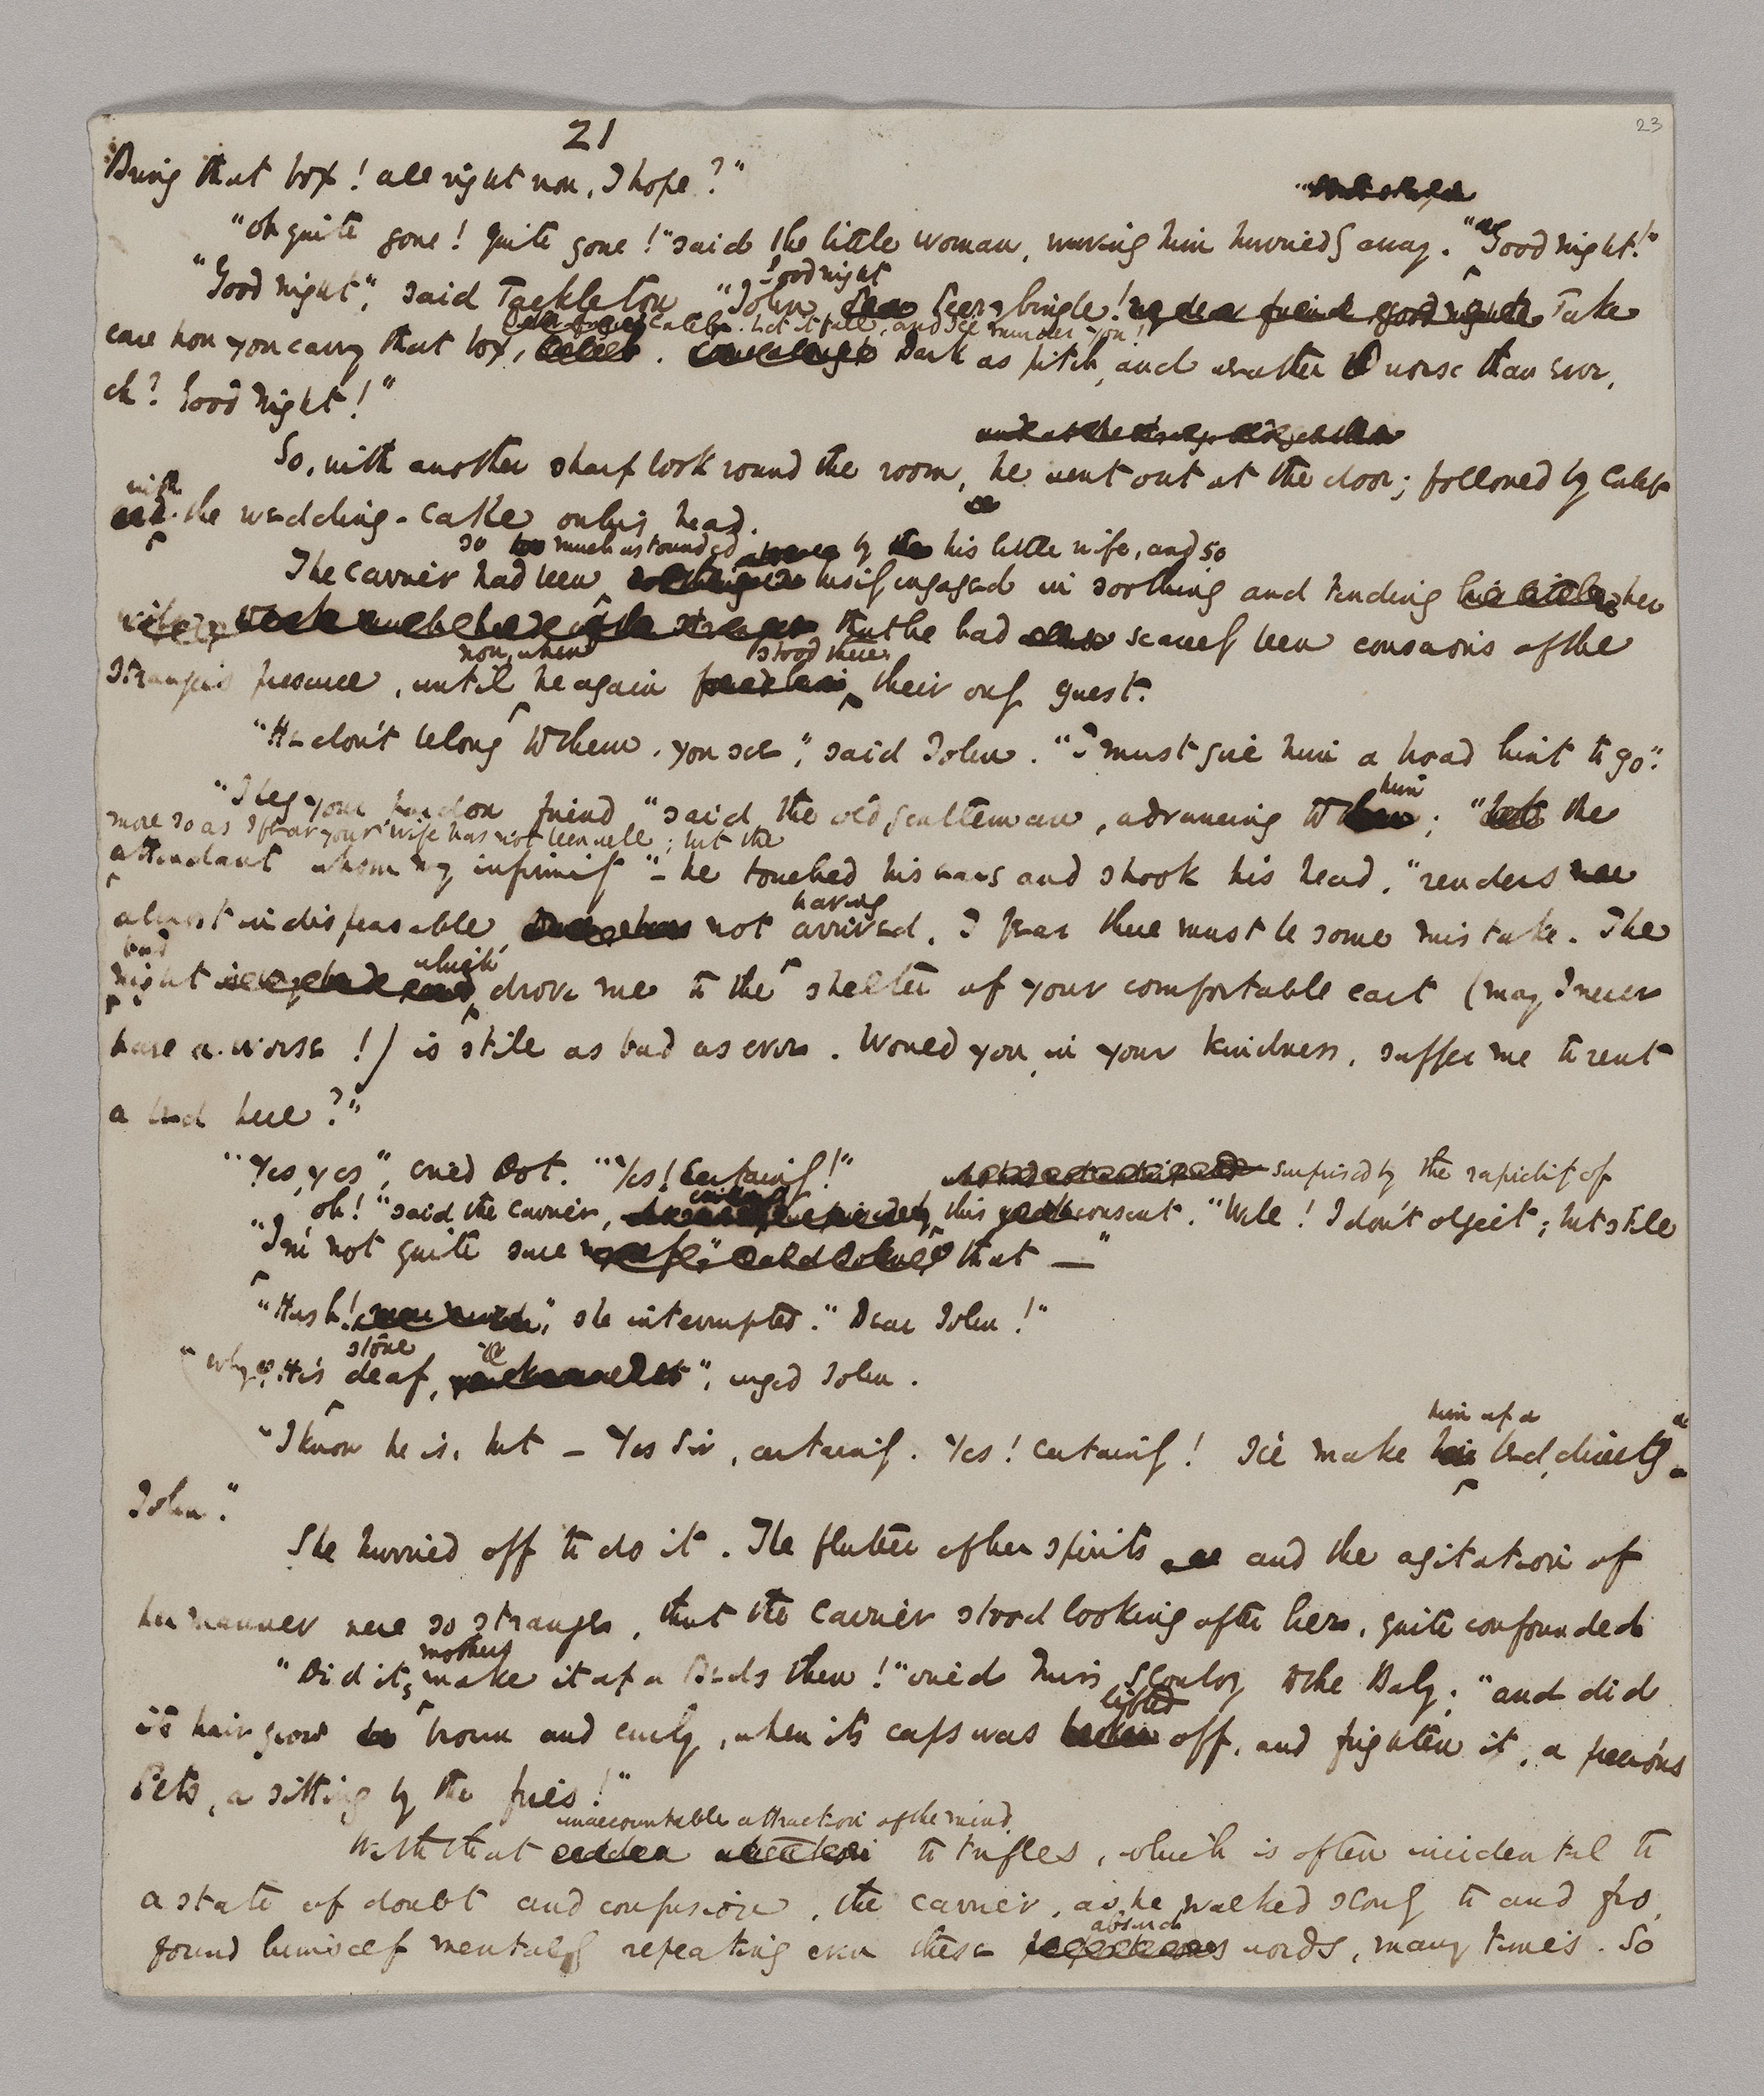 21
23
Bring that box! all right now, I hope?"
"Oh quite gone! Quite gone!" said the little woman, waving him hurriedly away. "Good night!"
good night
"Good night", said Tackleton "John Peerybingle! my dear friend good night Take
Caleb. Let it fall, and I'll murder you!
care how you carry that box, Dark as pitch, and weather worse than ever,
eh? Good night!"
So, with another sharp look round the room, he went out at the door; followed by Caleb
with
the wedding-cake on his head.
so much astounded by his little wife, and so
The Carrier had been busily engaged in soothing and tending her
that he had scarcely been conscious of the
now, when stood there
Stranger's presence, until he again their only guest.
"He don't belong to them, you see", said John. "I must give him a broad hint to go".
him
"I beg your pardon friend "said the old gentleman, advancing to ; " the
more so as I fear your wife has not been well; but the
attendant whom my infirmity "- he touched his ears and shook his head, "renders
having
almost indispensable, not arrived, I fear there must be some mistake. The
bad which
night drove me to the shelter of your comfortable cart (may I never
have a worse!) is still as bad as ever. Would you, in your kindness, suffer me to rent
a bed here?"
"Yes, yes", cried Dot. "Yes! Certainly!"
surprised by the rapidity of
oh!" said the Carrier, this consent. "Well! I don't object; but still
"I'm not quite sure that —"
"Hush! ", she interrupted. "Dear John!"
stone
"Why, He's deaf, ", urged John.
him up a
"I know he is, but - Yes Sir, certainly. Yes! Certainly! I'll make bed, directly
John."
She hurried off to do it. The flutter of her spirits and the agitation of
her manner were so strange, that the Carrier stood looking after her, quite confounded
mothers
"Did its make it up a Beds then!" cried Miss Slowboy to the Baby; "and did
lifted
its hair grow brown and curly, when its caps was off, and frighten it, a precious
Pets, a sitting by the fires!"
unaccountable attraction of the mind
With that to trifles, which is often incidental to
a state of doubt and confusion, the Carrier, as he walked slowly to and fro,
absurd
found himself mentally repeating even these words, many times. So